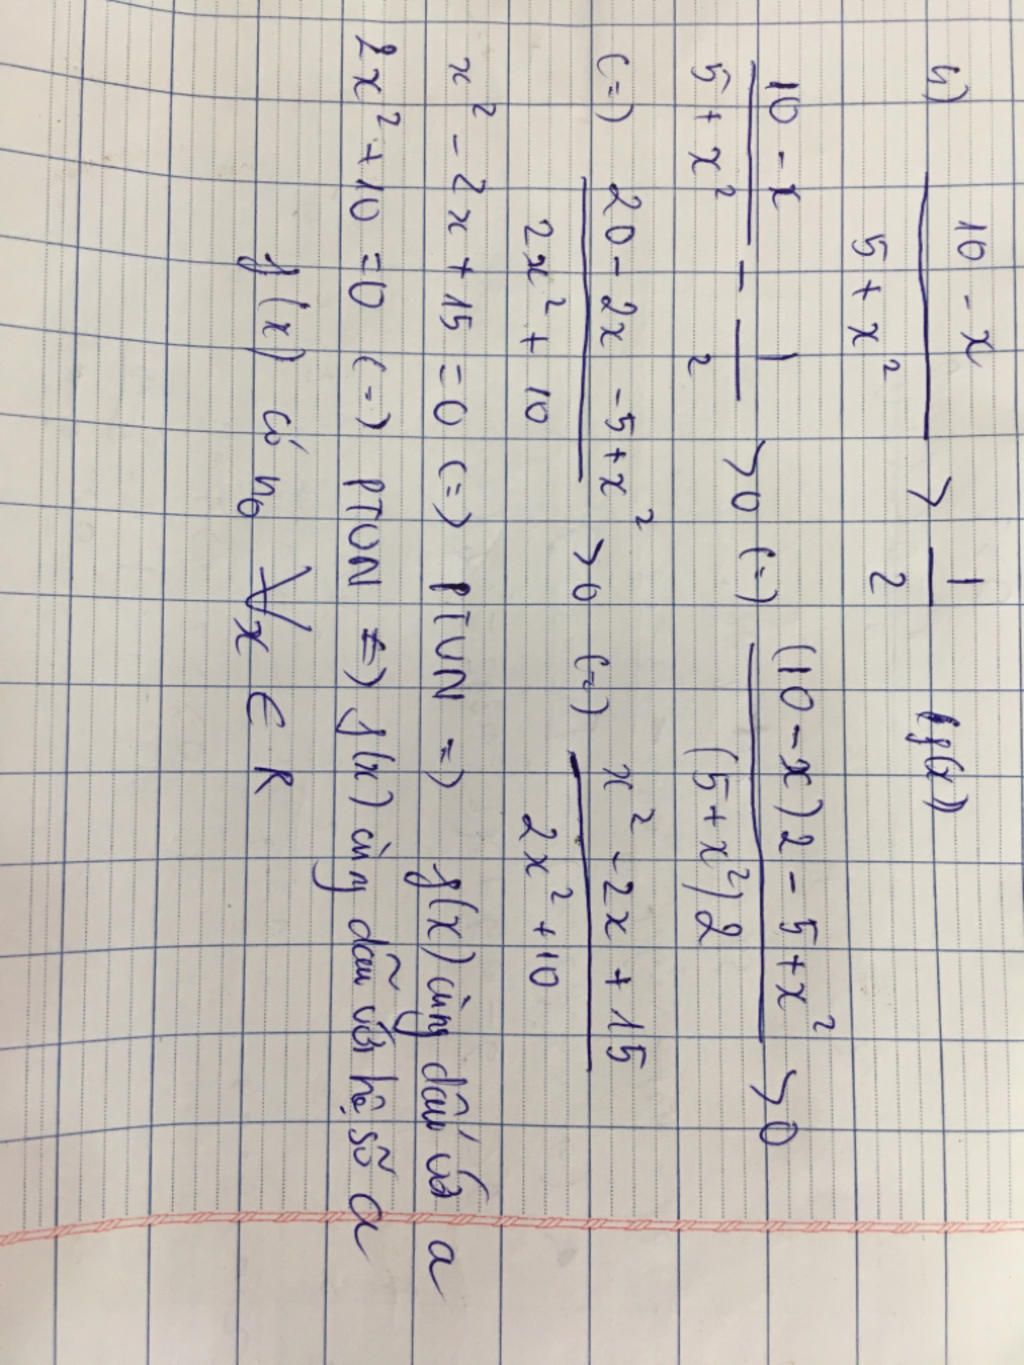 h) (10 - x)/(5 + x²) > 1/2 (f(x))
(10 - x)/(5 + x²) - 1/2 > 0 (=) ((10 - x)2 - 5 + x²)/((5 + x²)2) > 0
(=) (20 - 2x - 5 + x²)/(2x² + 10) > 0 (=) (x² - 2x + 15)/(2x² + 10)
x² - 2x + 15 = 0 (=) PTVN =) f(x) cùng dấu với a
2x² + 10 = 0 (=) PTVN =) f(x) cùng dấu với hệ số a
f(x) có no ∀x ∈ R